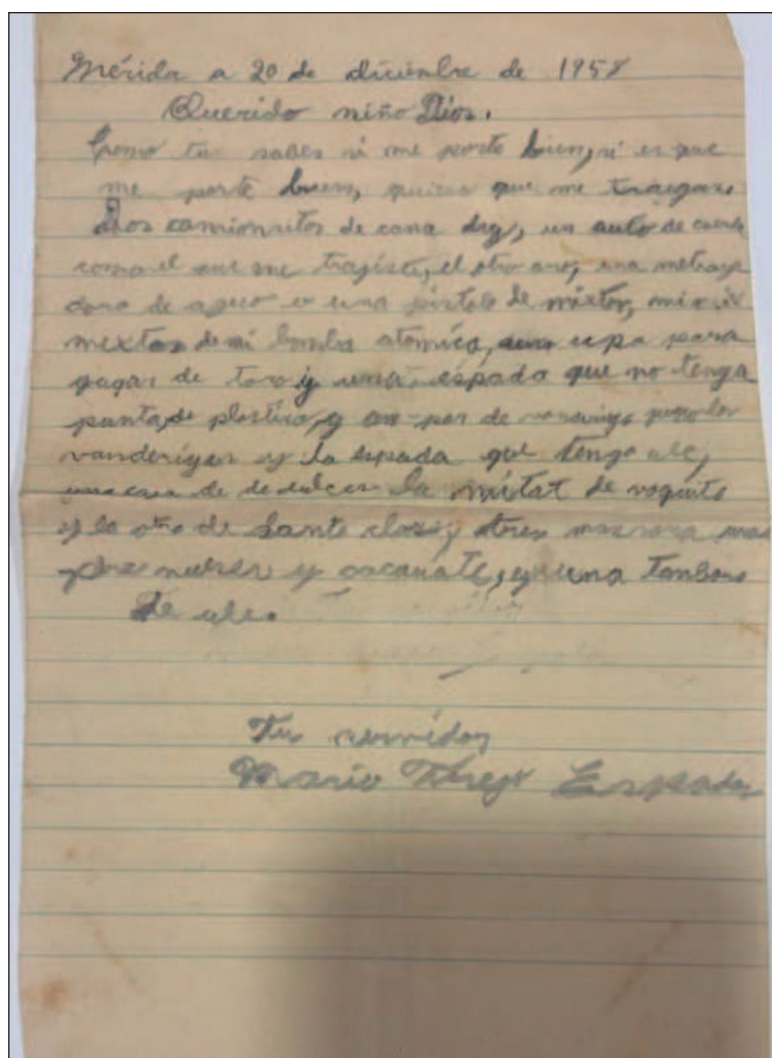 Mérida a 20 de diciembre de 1958
Querido niño Dios.
Como tu sabes si me porte bien, si es que
me porte buen, quiero que me traigas.
Dos camionsitos de cana dry, un auto de cuerda
como el que me trajiste, el otro ano, una metraya
dora de a peso o una pistola de mixtos,
mextos de mi bomba atomica, capa para
gugar de toro y una espada que no tenga
punta, de plastico, y un par de
vanderiyas y la espada que tengo ule,
de dulces la mitat de
y la otra de Santa clos, tres
nueses y cacauate, y una Tanbora
de ule.
Tu servidor
Mario Threjo Espada